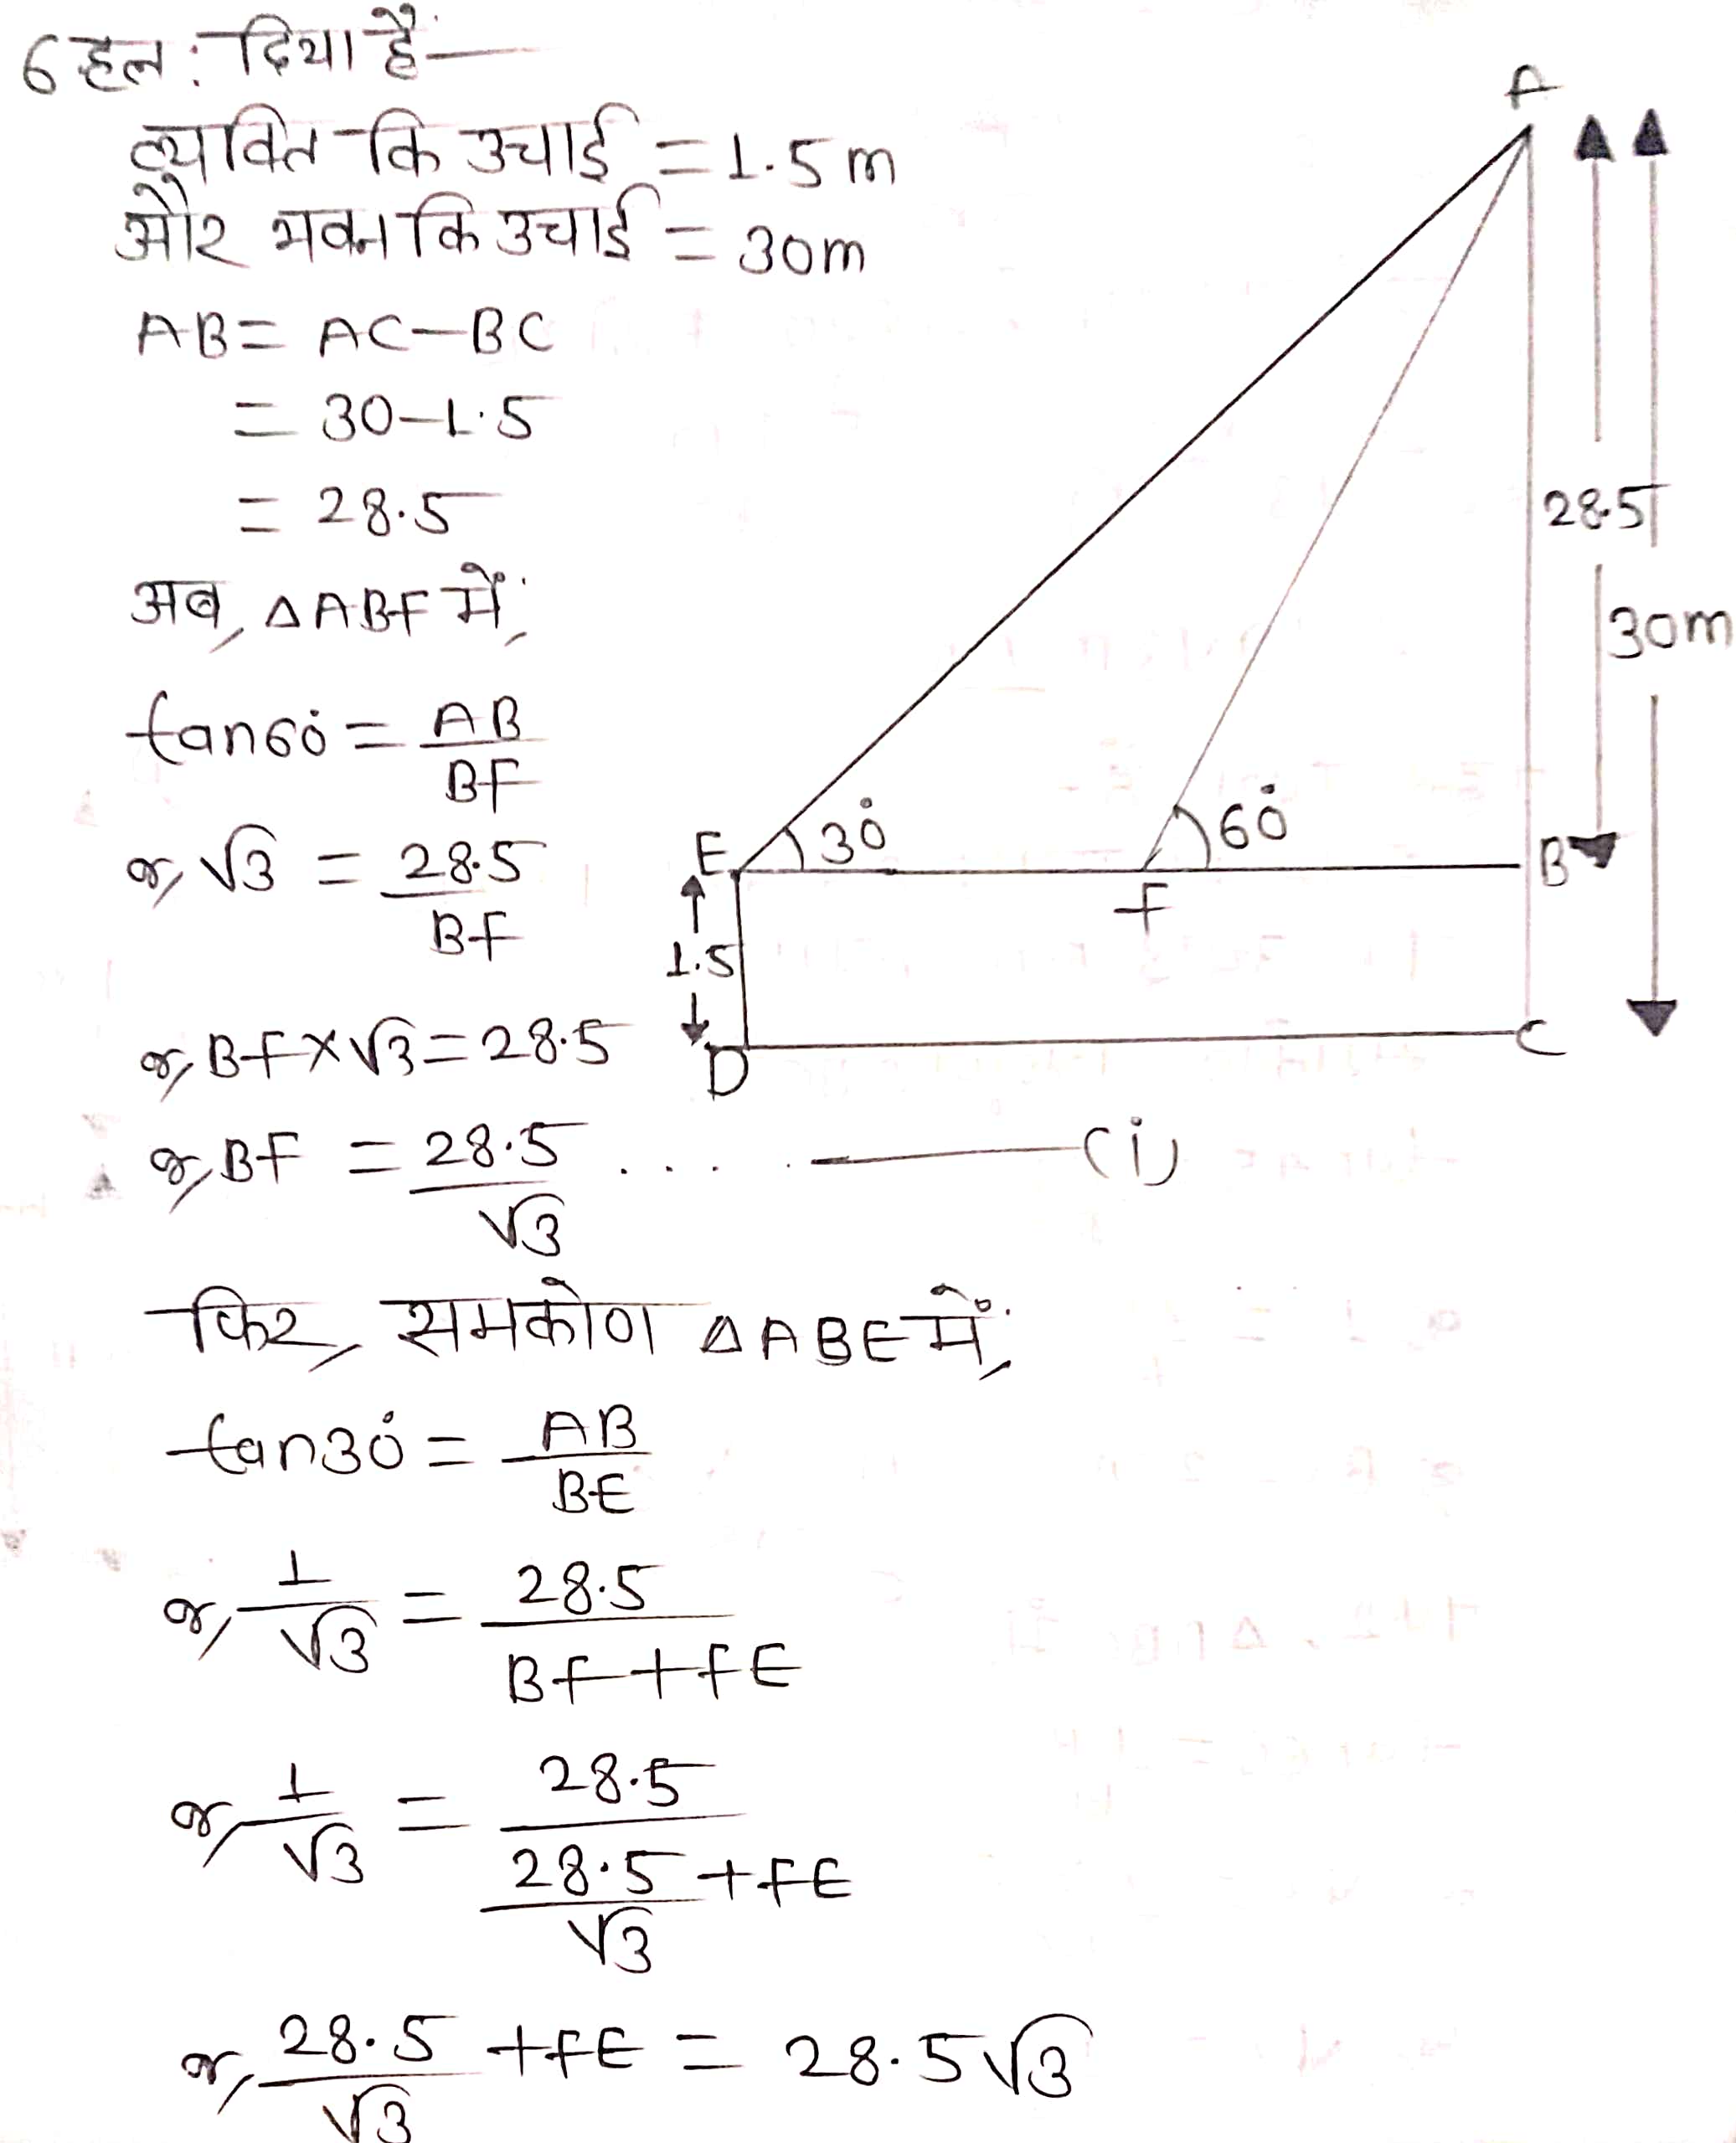 6 हल: दिया है —
व्यक्ति कि उचाई = 1.5 m
और भवन कि उचाई = 30m
AB = AC — BC
= 30 — 1.5
= 28.5
अब, △ABF में,
tan60° = AB/BF
or, √3 = 28.5/BF
or, BF × √3 = 28.5
or, BF = 28.5/√3 ..... ——— (i)
फिर, समकोण △ABE में,
tan30° = AB/BE
or, 1/√3 = 28.5/BF + FE
or, 1/√3 = 28.5/28.5/√3 + FE
or, 28.5/√3 + FE = 28.5√3
A
28.5
30m
E 30° 60° B
F
1.5
D C